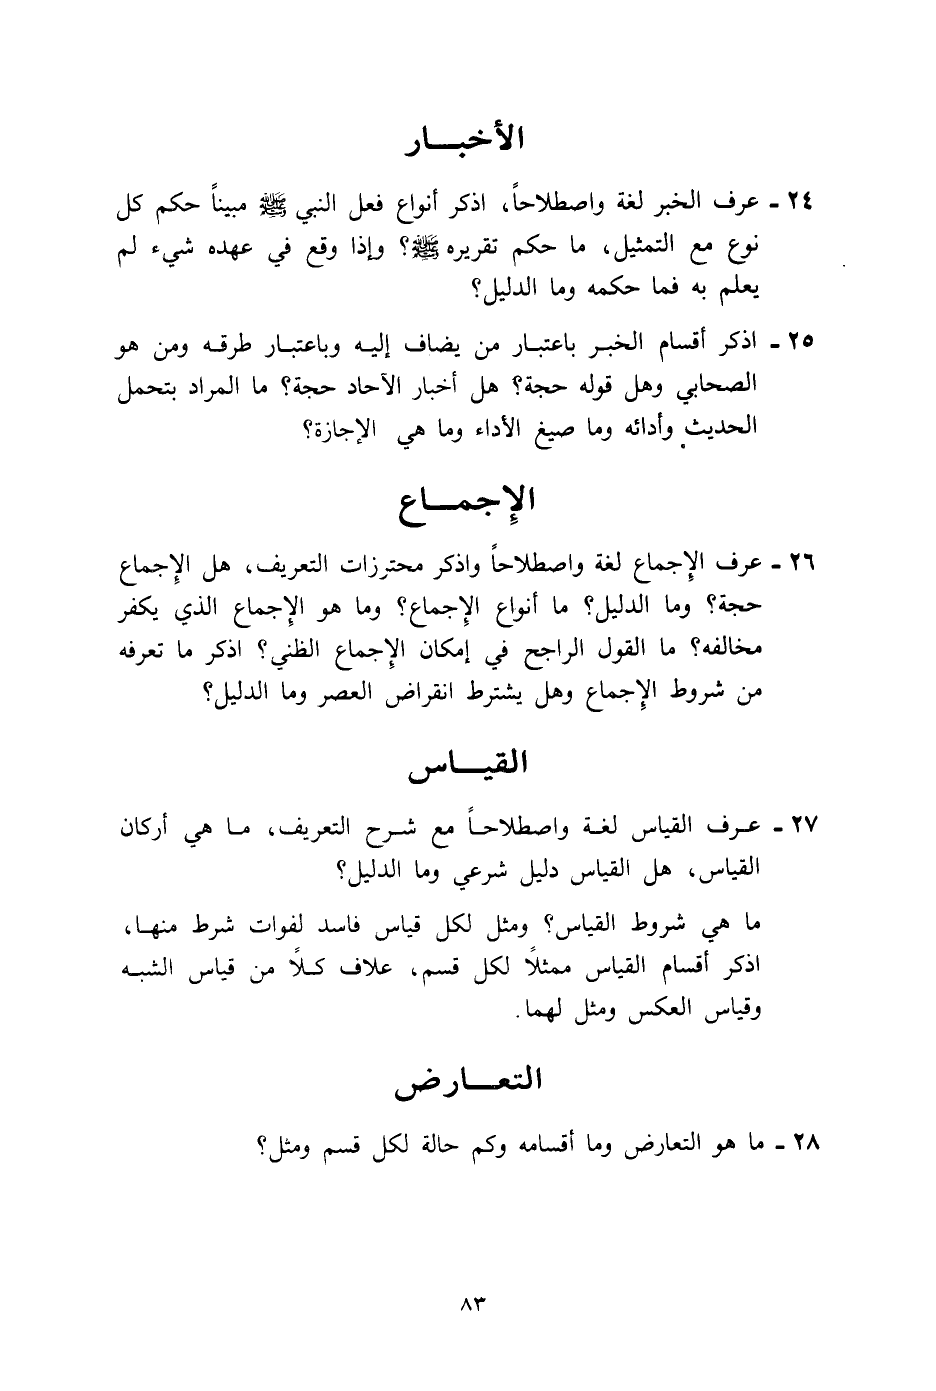 الأخبـــار
٢٤ ـ عرف الخبر لغة واصطلاحاً، اذكر أنواع فعل النبي ﷺ مبيناً حكم كل
نوع مع التمثيل، ما حكم تقريره ﷺ؟ وإذا وقع في عهده شيء لم
يعلم به فما حكمه وما الدليل؟
٢٥ ـ اذكر أقسام الخبر باعتبار من يضاف إليه وباعتبار طرقه ومن هو
الصحابي وهل قوله حجة؟ هل أخبار الآحاد حجة؟ ما المراد بتحمل
الحديث وأدائه وما صيغ الأداء وما هي الإجازة؟
الإجمـــاع
٢٦ ـ عرف الإجماع لغة واصطلاحاً واذكر محترزات التعريف، هل الإجماع
حجة؟ وما الدليل؟ ما أنواع الإجماع؟ وما هو الإجماع الذي يكفر
مخالفه؟ ما القول الراجح في إمكان الإجماع الظني؟ اذكر ما تعرفه
من شروط الإجماع وهل يشترط انقراض العصر وما الدليل؟
القيـــاس
٢٧ ـ عرف القياس لغة واصطلاحاً مع شرح التعريف، ما هي أركان
القياس، هل القياس دليل شرعي وما الدليل؟
ما هي شروط القياس؟ ومثل لكل قياس فاسد لفوات شرط منها،
اذكر أقسام القياس ممثلاً لكل قسم، علاف كلاً من قياس الشبه
وقياس العكس ومثل لهما.
التعـــارض
٢٨ ـ ما هو التعارض وما أقسامه وكم حالة لكل قسم ومثل؟
٨٣